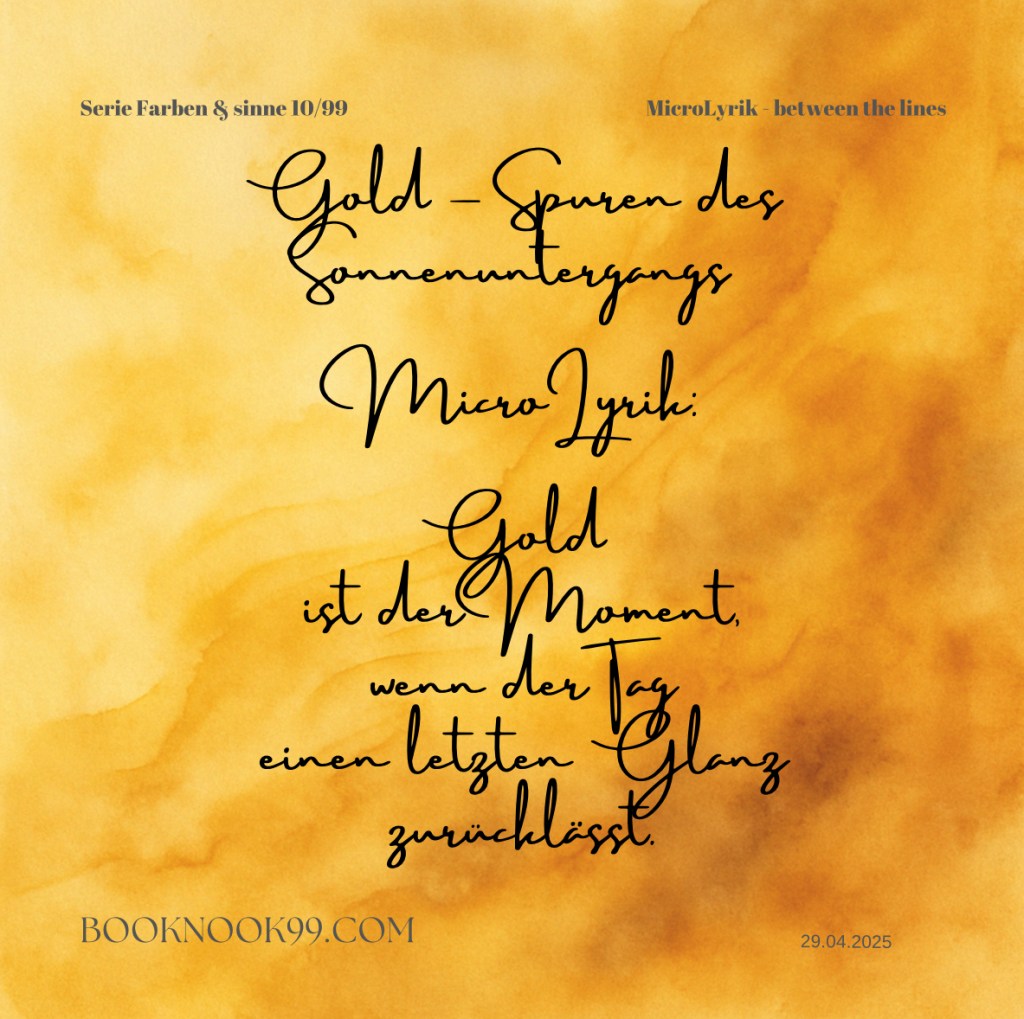 Serie Farben & sinne 10/99
MicroLyrik - between the lines
Gold – Spuren des
Sonnenuntergangs
MicroLyrik:
Gold
ist der Moment,
wenn der Tag
einen letzten Glanz
zurücklässt.
BOOKNOOK99.COM
29.04.2025